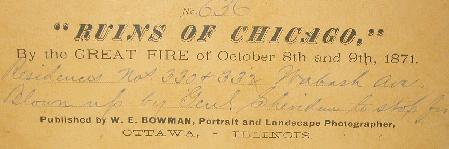 No. 636
"RUINS OF CHICAGO,"
By the GREAT FIRE of October 8th and 9th, 1871.
Residences Nos 330 & 332 Wabash Ave.
Blown up by Genl. Sheridan to stop fire
Published by W. E. BOWMAN, Portrait and Landscape Photographer,
OTTAWA, - ILLINOIS